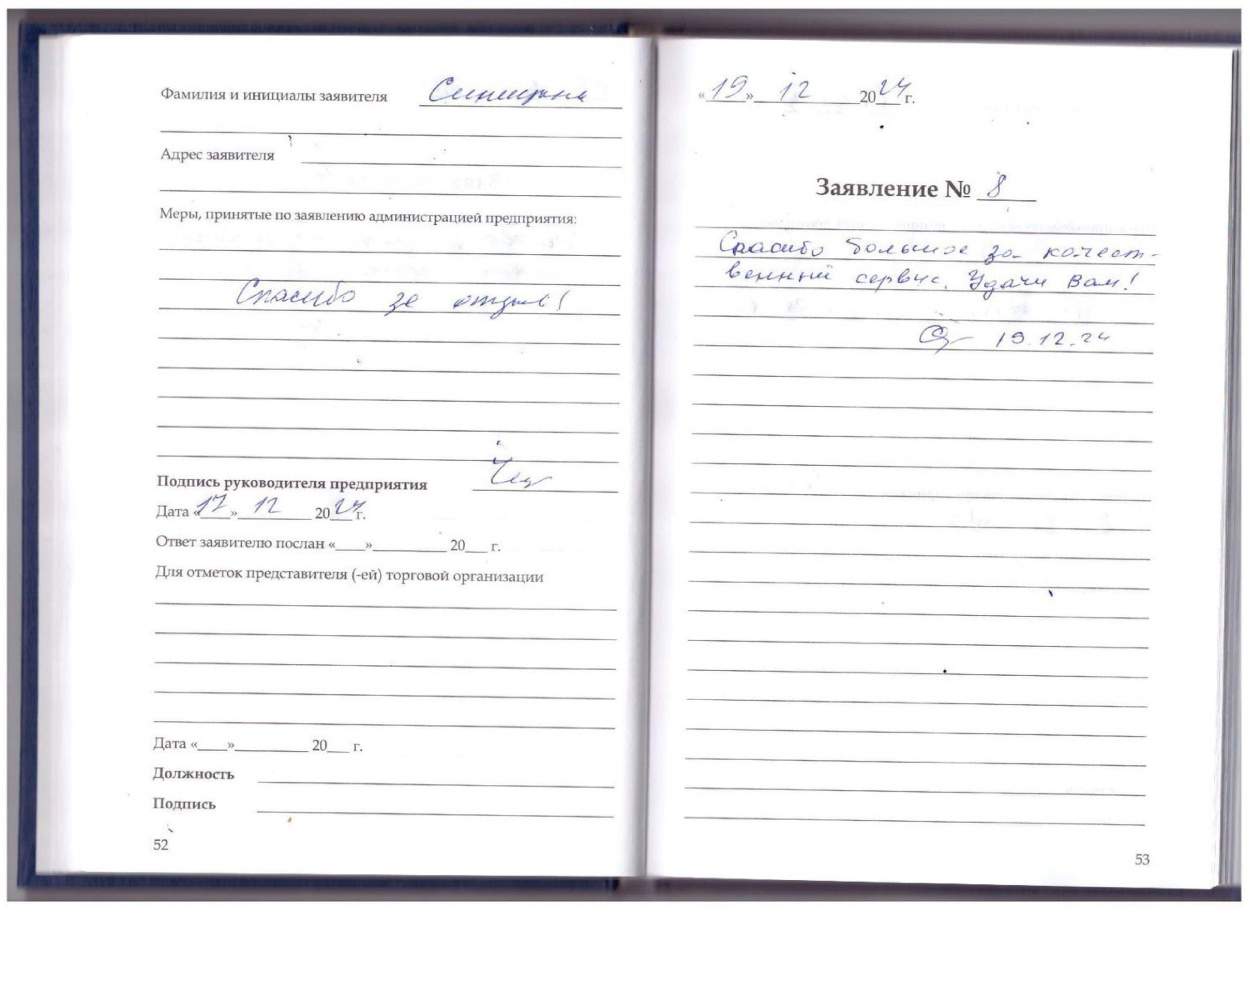 Фамилия и инициалы заявителя Синицына
Адрес заявителя
Меры, принятые по заявлению администрацией предприятия:
Спасибо за отзыв!
Подпись руководителя предприятия
Дата «17» 12 2024 г.
Ответ заявителю послан «___»__________ 20___ г.
Для отметок представителя (-ей) торговой организации
Дата «____»__________ 20___ г.
Должность
Подпись
52
«19» 12 2024 г.
Заявление № 8
Спасибо большое за качест-
венный сервис. Удачи Вам!
19.12.24
53